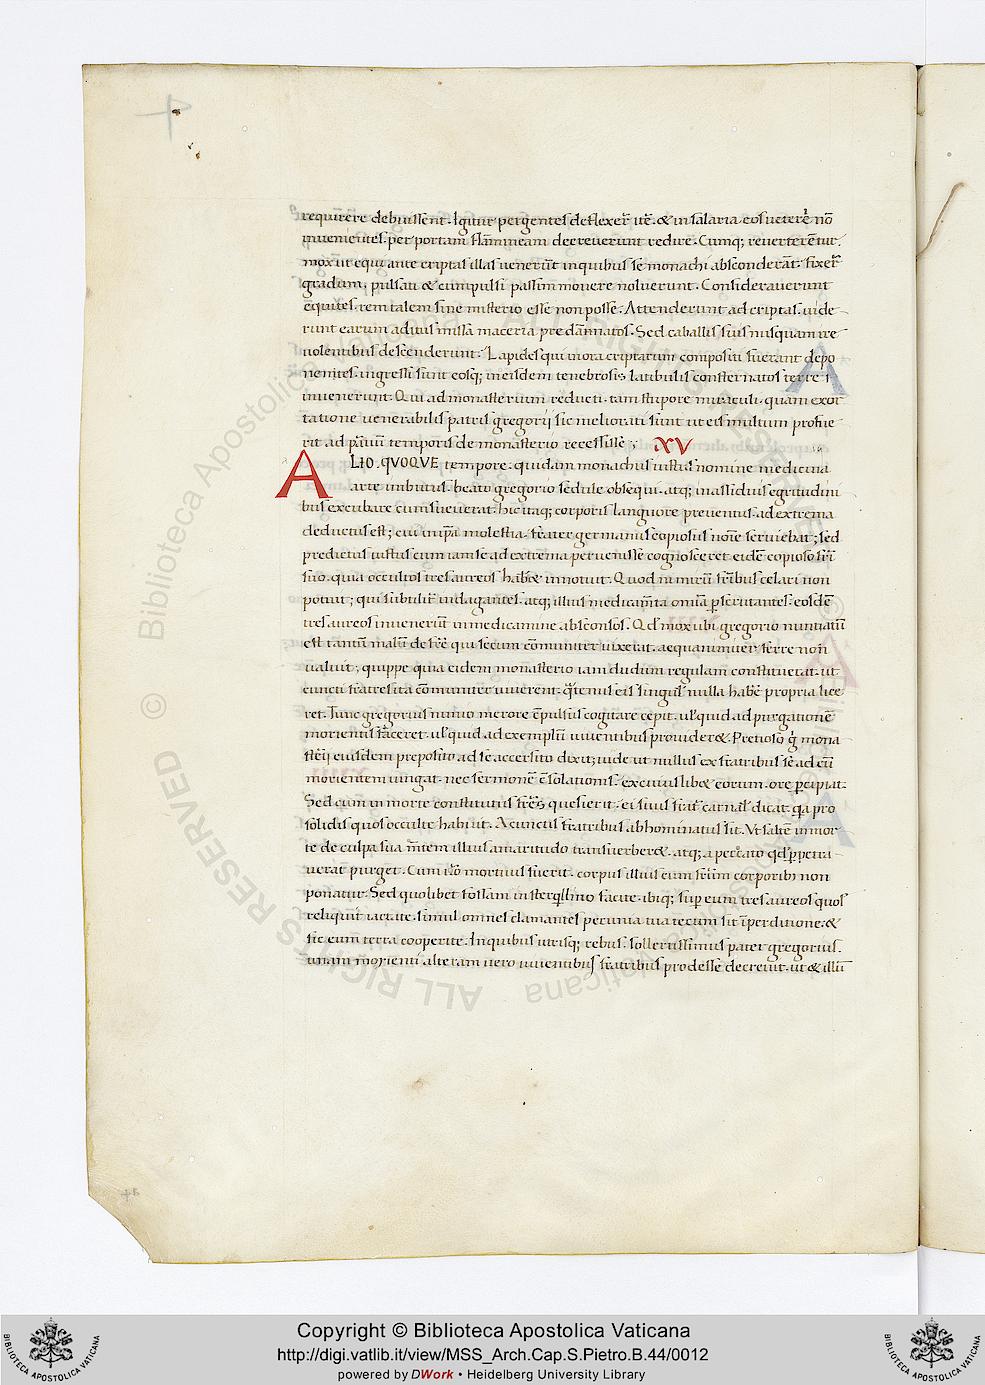 4
requirere debuissent. Igitur pergentes deflexer̄ itē. & in salaria eos ueterē nō
inuenientes. per portam flammineam decreuerunt redire. Cumq; reuerterēntur.
mox ut equi ante criptas illas uenerūt in quibus se monachi absconderāt. fixer̄
gradum. pulsati & cumpulsi passim mouere noluerunt. Considerauerunt
equites. rem talem sine misterio esse non posse. Attenderunt ad criptas. uide
runt earum aditus missā maceria predāmnatos. Sed caballis suis nusquam ire
uolentibus descenderunt. Lapides qui in ora criptarum compositi fuerant depo
nentes. ingressi sunt eosq; in eisdem tenebrosis latibulis consternatos terre
inuenerunt. Qui ad monasterium reducti. tam stupore miraculi. quam exor
tatione uenerabilis patris gregorij sic meliorati sunt ut eis multum profue
rit ad paruū temporis de monasterio recessisse;
XV
ALIO. QVOQVE tempore. quidam monachus iustus nomine medicina
arte imbutus. beato gregorio sedule obsequi. atq; in assiduis egritudini
bus excubare cunsueuerat. hic itaq; corporis languore preuentus. ad extrema
deductus est; cui in ipsa molestia. frater germanus copiosus noīe seruiebat; sed
predictus iustus cum iam se ad extrema peruenisse cognosceret. eidē copioso frī
suo. quia occultos tres aureos habēr innotuit. Quod nimirū frībus celari non
potuit; qui subtilit̄ indagantes. atq; illius medicam̄ta omīa p̄scrutantes. eosdē
tres aureos inuenerūt in medicamine absconsos. Qd̄ mox ubi gregorio nuntiatū
est tantū malū de frē qui secum cōmuniter uixerat. aequanimiter ferre non
ualuit; quippe quia eidem monasterio iam dudum regulam constituerat. ut
cuncti fratres ita cōmuniter uiuerent. q̄tenus eis singul' nulla habē propria lice
ret. Tunc gregorius nimio merore cp̄ulsus cogitare cepit. ul' quid ad purgationē
morientis faceret. ul' quid ad exemplū uiuentibus prouider&. Pretioso g̊ mona
sterij eiusdem preposito. ad se accersito dixit; uide ut nullus ex fratribus se ad eū
morientem iungat. nec sermonē c̄solationis. ex cuiuslib& eorum. ore p̄cipiat.
Sed cum in morte constitutus frēs quesierit. ei suus frat' carnal' dicat. q̄a pro
solidis quos occulte habuit. A cunctis fratribus abhominatus sit. Vt saltē in mor
te de culpa sua m̄tem illius amaritudo transuerber&. atq; a peccato qd̄ p̄petra
uerat purget. Cum ūo mortuus fuerit. corpus illius cum frūm corporibȝ non
ponatur. Sed quolibet fossam in sterq̄lino facite. ibiq; sup̄ eum tres aureos quos
reliquit iactate. simul omnes clamantes pecunia tua tecum sit i̅perditione. &
sic eum terra cooperite. In quibus utrisq; rebus. sollertissimus pater gregorius.
unam morienti. alteram uero uiuentibus fratribus prodesse decreuit. ut & illū
© Biblioteca Apostolica Vaticana ALL RIGHTS RESERVED
Copyright © Biblioteca Apostolica Vaticana
http://digi.vatlib.it/view/MSS_Arch.Cap.S.Pietro.B.44/0012
powered by DWork • Heidelberg University Library
BIBLIOTECA APOSTOLICA VATICANA
BIBLIOTECA APOSTOLICA VATICANA